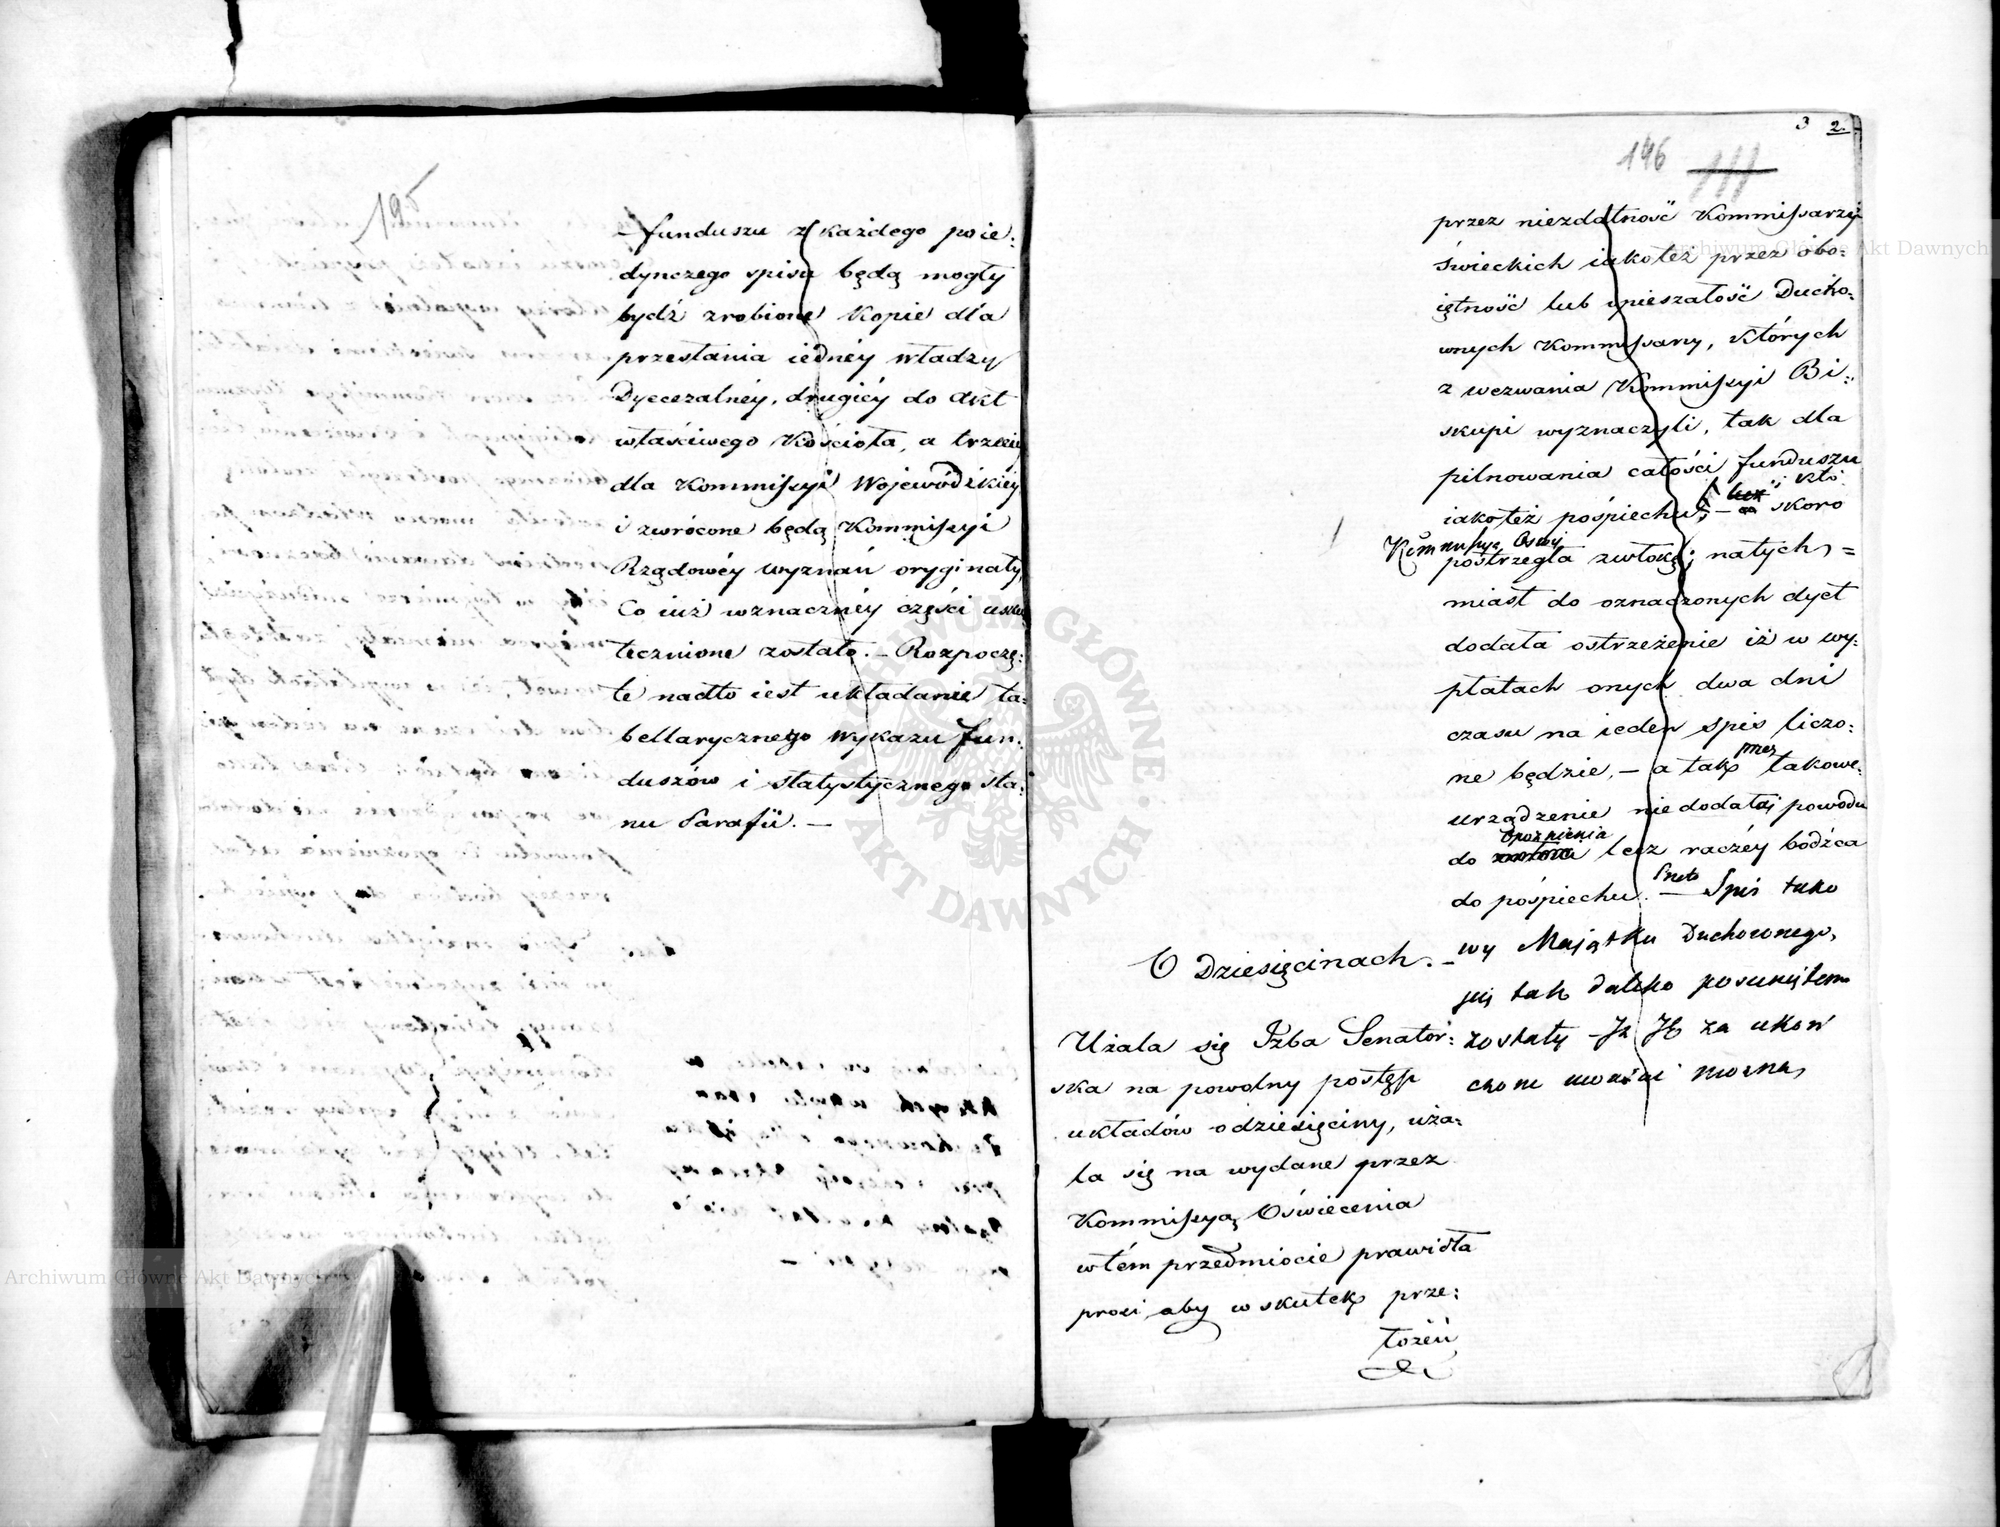 195
funduszu z każdego poie:
dynczego spisu będą mogły
bydź zrobione Kopie dla
przesłania iednéy władzy
Dyecezalnéy, drugiéy do Akt
właściwego Kościoła, a trzeciéy
dla Kommissyi Wojewódzkiéy
i zwrócone będą Kommissyi
Rządowéy Wyznań oryginały,
Co iuż wznacznéy części usku
tecznione zostało. – Rozpoczę:
te nadto iest układanie ta:
bellarycznego wykazu fun:
duszów i statystycznego sta:
nu Parafii. –
3 2.
196
przez niezdatność Kommissarzy
świeckich iakoteż przez obo:
iętność lub opieszałość Ducho:
wnych Kommissarzy, których
z wezwania Kommissyi Bi:
skupi wyznaczyli, tak dla
pilnowania całości funduszu
iakoteż pośpiechu; – skoro
Kommissya Oswj
postrzegła zwłokę; natych =
miast do oznaczonych dyet
dodała ostrzeżenie iż w wy:
płatach onych dwa dni
czasu na ieden spis liczo:
ne będzie, – a tak przez takowe:
urządzenie niedodała powodu
opoznienia
do lecz raczéy bodźca
do pośpiechu. – Spis tako
wy Majątku Duchownego,
już tak daleko posunięte
zostały – Iż Je za ukoń
czone uważać można,
O Dziesięcinach. –
Użala się Izba Senator:
ska na powolny postęp
układów o dziesięciny, uża:
la się na wydane przez
Kommissyą Oświecenia
wtém przedmiocie prawidła
prosi aby w skutek prze:
łożeń
Archiwum Główne Akt Dawnych
Archiwum Główne Akt Dawnych
ARCHIWUM GŁÓWNE AKT DAWNYCH